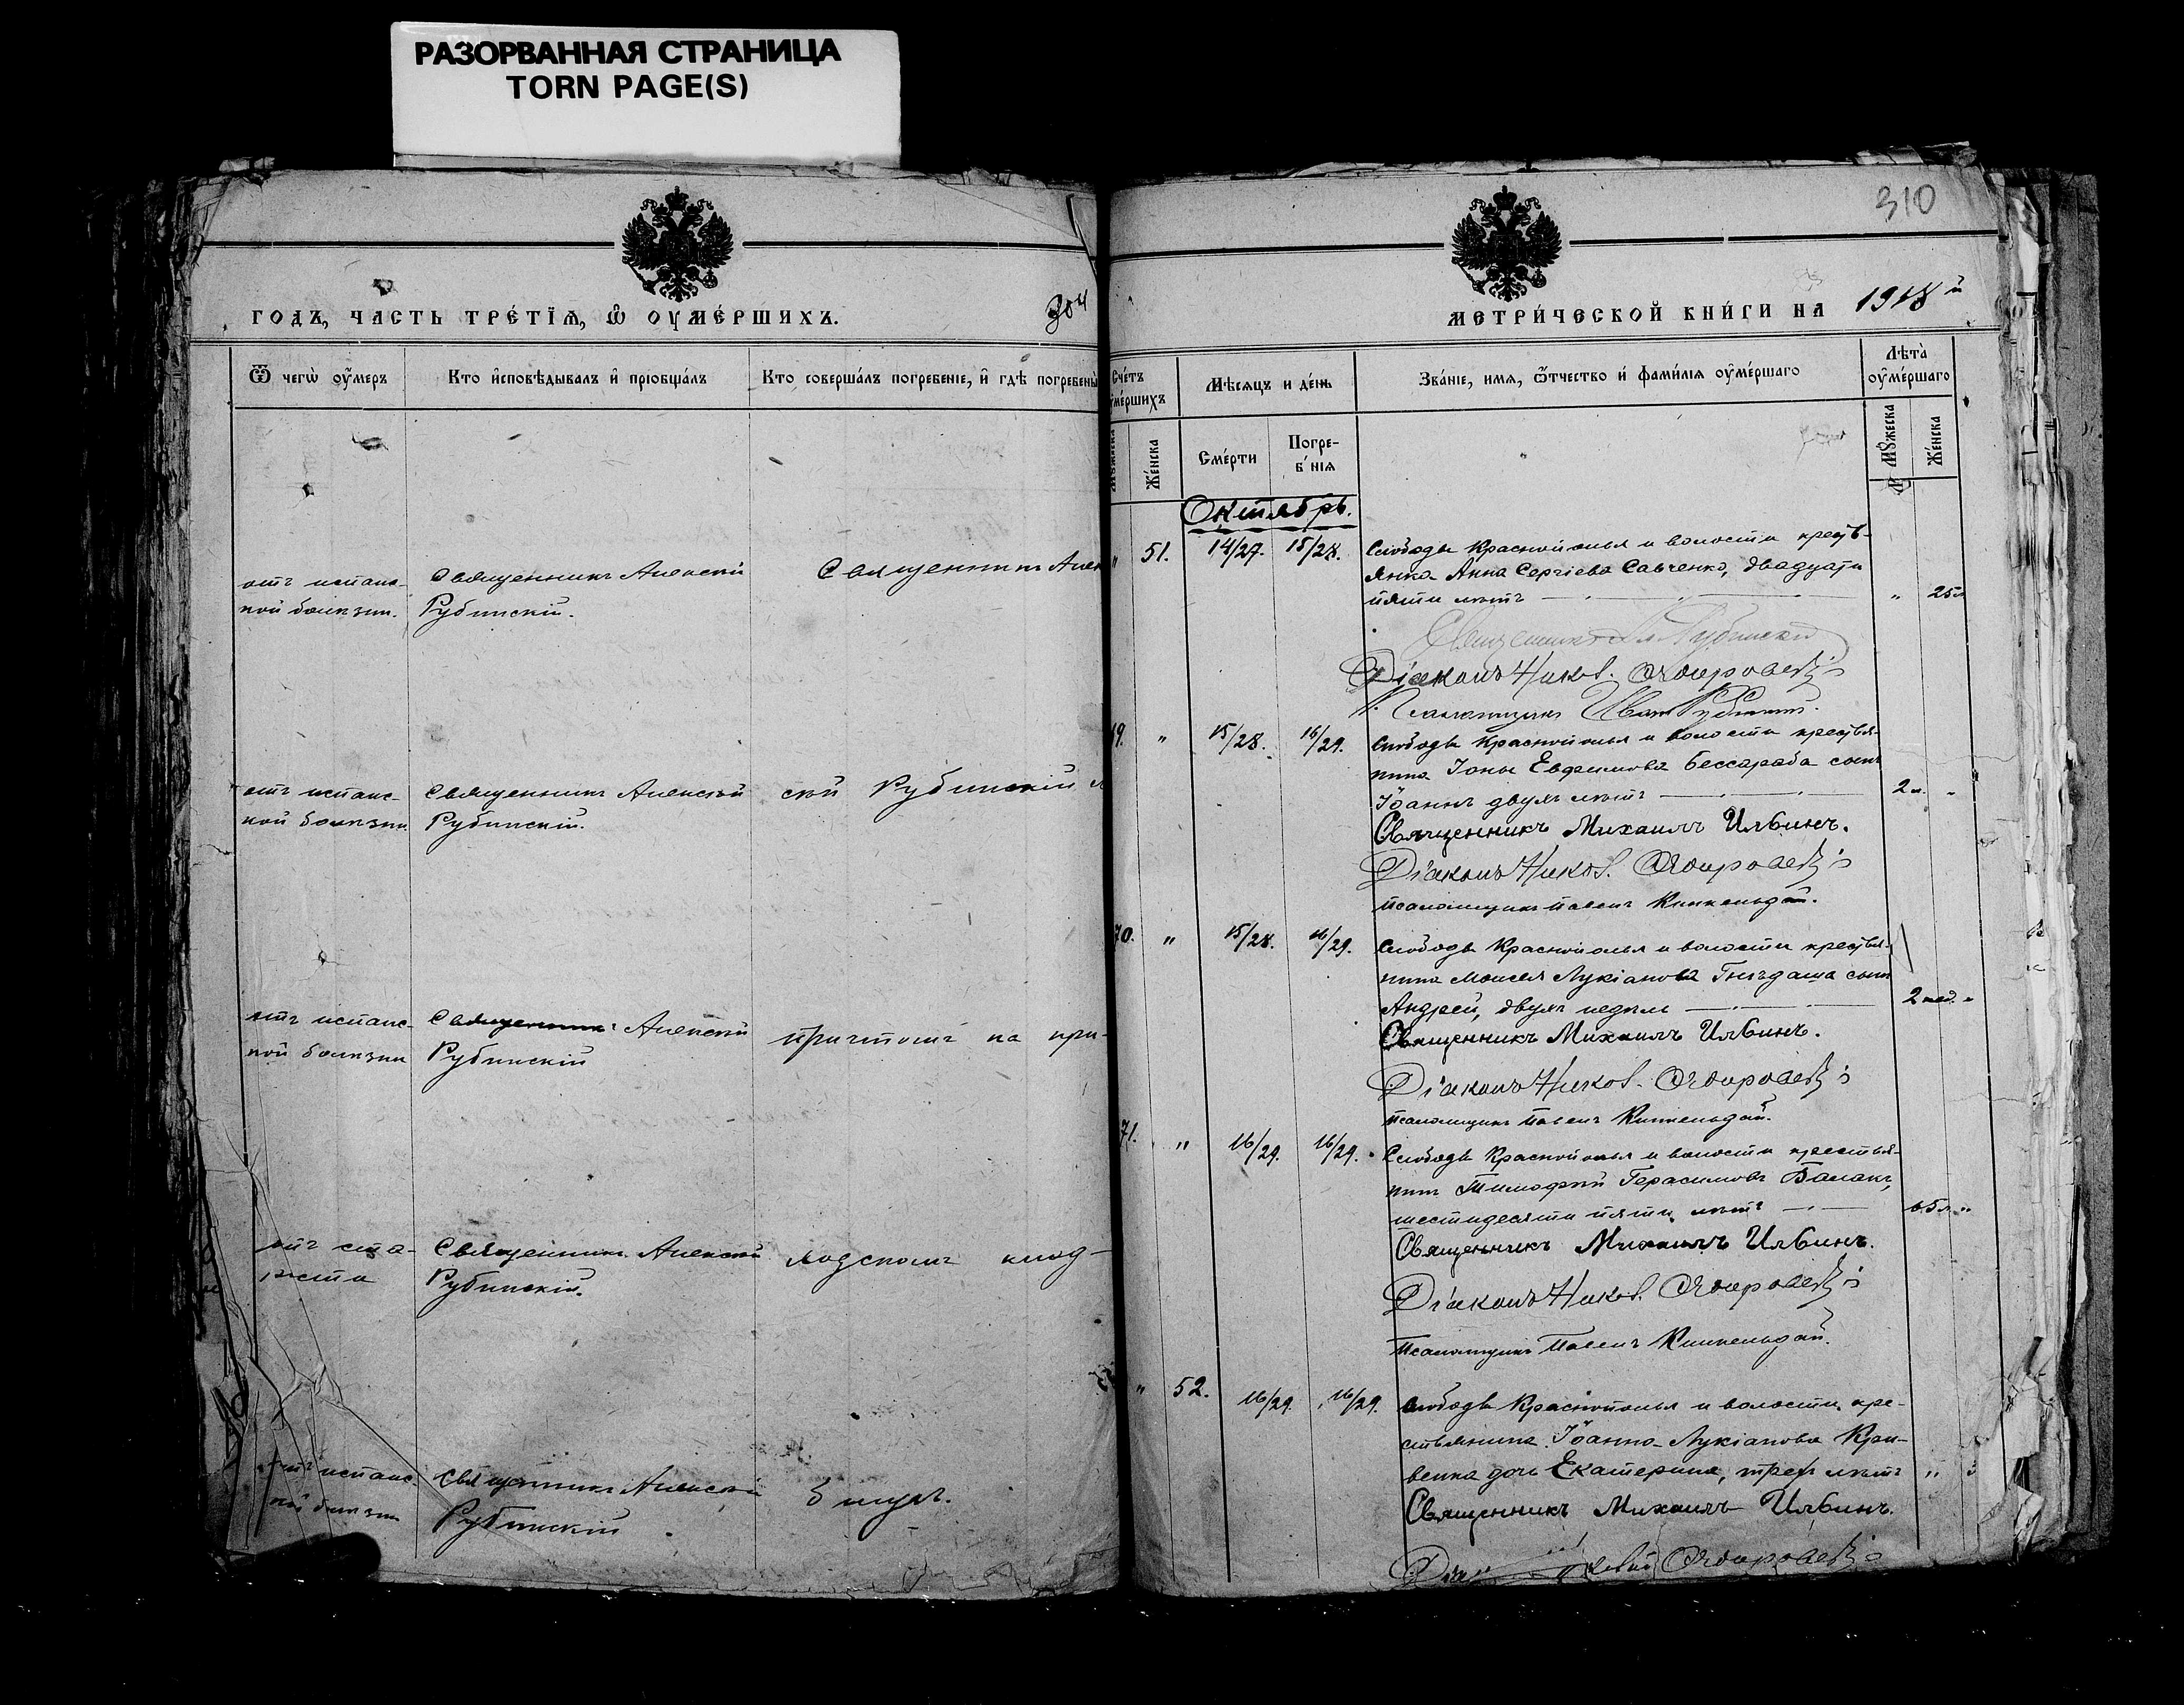 РАЗОРВАННАЯ СТРАНИЦА
TORN PAGE(S)
304
ГОДЪ, ЧАСТЬ ТРЕ́ТЇѦ, Ѿ ОУМЕ́РШИХЪ.
Ѿ чегѡ̀ оу҆́меръ
Кто и҆сповѣ́дывалъ и҆ прїобща́лъ
Кто соверша́лъ погребе́нїе, и҆ гдѣ̀ погребены̀
отъ испанс-
кой болѣзни.
Священникъ Алексѣй
Рубинскій.
Священникъ Алек
отъ испанс-
кой болѣзни
Священникъ Алексѣй
Рубинскій.
сѣй Рубинскій
отъ испанс-
кой болѣзни
Священникъ Алексѣй
Рубинскій
причтомъ на при-
отъ ста-
рости
Священникъ Алексѣй
Рубинскій.
ходскомъ клад-
отъ испанс-
кой болѣзни
Священникъ Алексѣй
Рубинскій
бищѣ.
310
МЕТРИ́ЧЕСКОЙ КНИ́ГИ НА 1918й
Сче́тъ
оуме́ршихъ
Мѣ́сѧцъ и де́нь
Зва́нїе, имѧ, ѻ҆́тчество и҆ фами́лїѧ оуме́ршаго
Лѣта̀
оуме́ршаго
Мꙋ́жеска
Же́нска
Сме́рти
Погре-
бе́нїѧ
Мꙋ́жеска
Же́нска
Октябрь.
" 51. 14/27. 15/28. Слободы Краснополья и волости кресть-
янка Анна Сергіева Савченко, двадцати
пяти лѣтъ " 25л
Священникъ Ал Рубинскій
Діаконъ Никол.
Псаломщикъ Иван Рубинскій.
19. " 15/28. 16/29. Слободы Краснополья и волости крестья-
нина Іоны Евфимова Бессараба сынъ
Іоаннъ двухъ лѣтъ 2л. "
Священникъ Михаилъ Ильинъ.
Діаконъ Никол.
Псаломщикъ Павелъ
70. " 15/28. 16/29. Слободы Краснополья и волости крестья-
нина Моисея Лукіанова Гнѣдаша сынъ
Андрей, двухъ недѣль 2 нед. "
Священникъ Михаилъ Ильинъ.
Діаконъ Никол.
Псаломщикъ Павелъ
71. " 16/29. 16/29. Слободы Краснополья и волости крестья-
нинъ Тимофей Герасимовъ
шестидесяти пяти лѣтъ 65л "
Священникъ Михаилъ Ильинъ.
Діаконъ Никол.
Псаломщикъ Павелъ
" 52. 16/29. 16/29. Слободы Краснополья и волости кре-
стьянина Іоанна Лукіанова Кри-
венка дочь Екатерина, трехъ лѣтъ " 3
Священникъ Михаилъ Ильинъ.